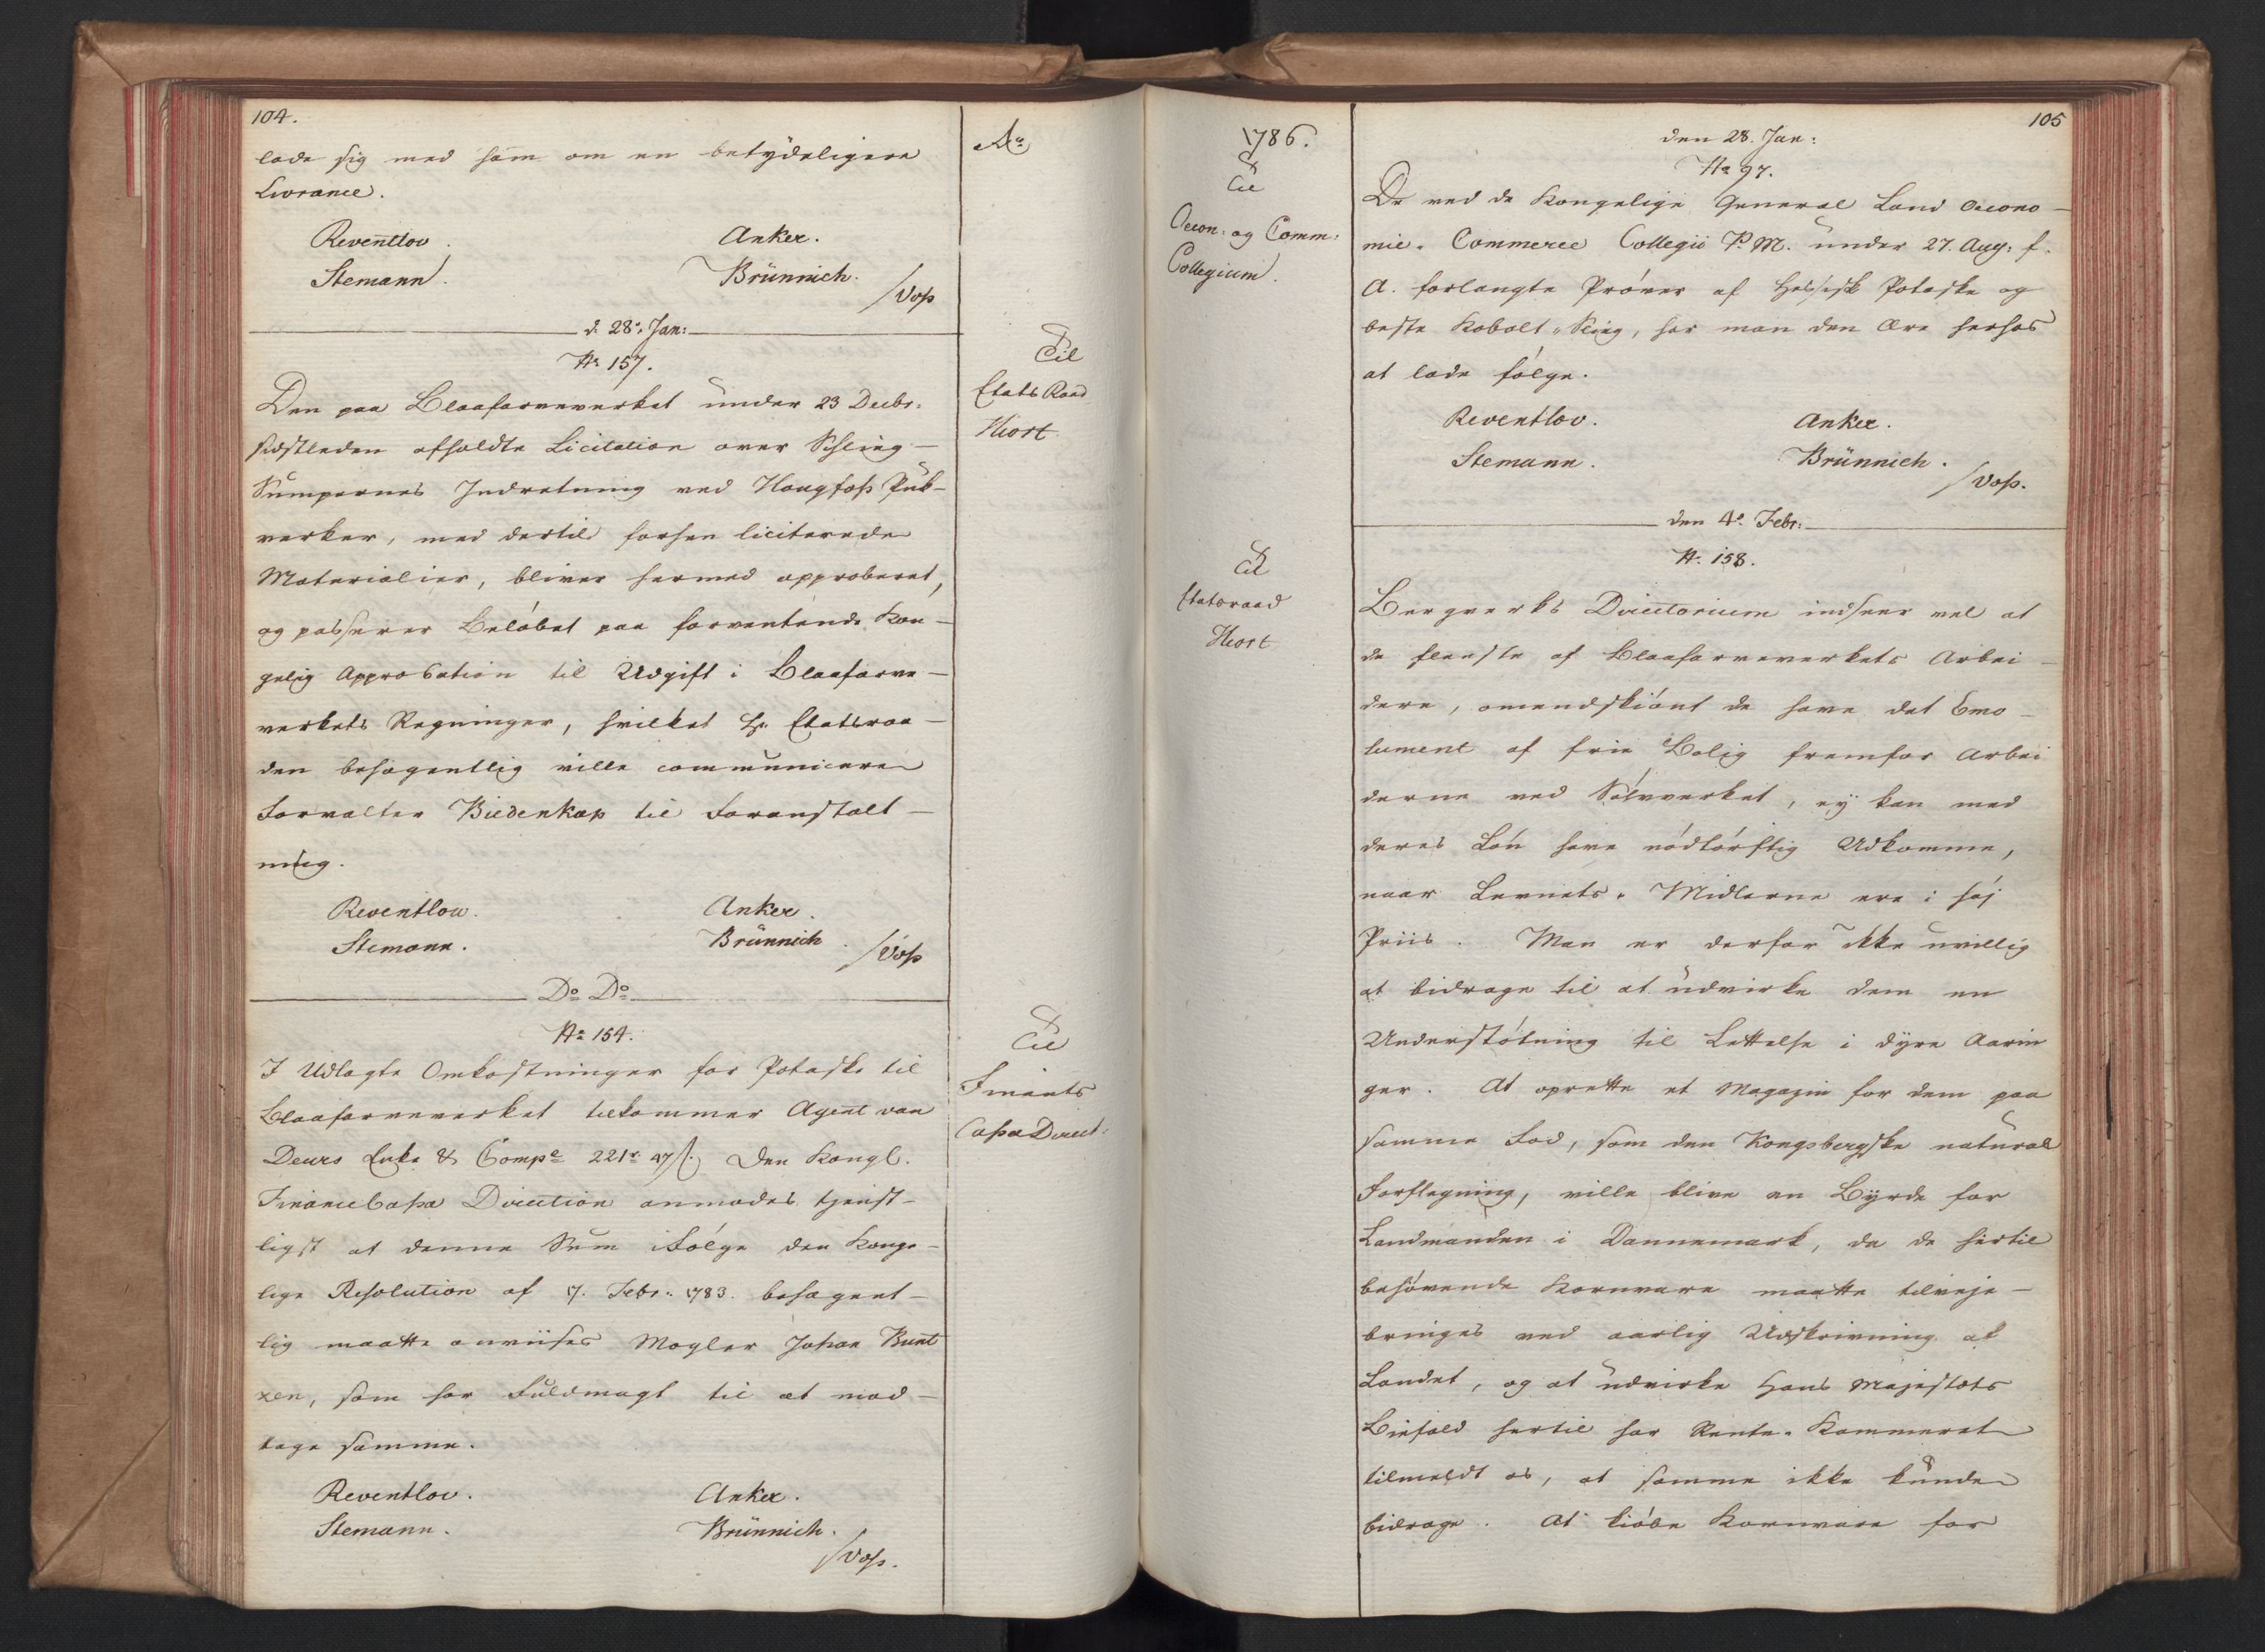 104.
Ao
lade sig med ham om en betydeligere
Livrance.
Reventlov. Anker.
Stemann. Brünnich.
/Voss
d. 28de Jan:
No 157.
Til
Etats Raad
Hiort
Den paa Blaafarveverket under 23 Decbr.
sidstleden afholdte Licitation over Schlieg-
Sumpernes Indretning ved Hougfoss Puk-
verker, med dertil forhen liciterede
Materialier, bliver hermed approberet,
og passerer Beløbet paa forventende Kon-
gelig Approbation til Udgift i Blaafarve-
verkets Regninger, hvilket Hr. Etatsraa-
den behagentlig ville communicere
Forvalter Biedenkap til Foranstalt-
ning.
Reventlow. Anker.
Stemann. Brünnich.
/Voss
Do Do
No 154.
Til
Finants
Cassa Direct:
I Udlagte Omkostninger for Potaske til
Blaafarveverket tilkommer Agent van
Deurs Enke & Compe 221r 47s. Den Kongl.
FinanceCassa Direction anmodes tjenst-
ligst at denne Sum ifølge den Konge-
lige Resolution af 17. Febr. 1783. behagent-
lig maatte anviises Mægler Johan Bunt
zen, som har Fuldmagt til at mod-
tage samme.
Reventlov. Anker.
Stemann. Brünnich.
/Voss.
105
1786.
den 28. Jan:
No 97.
Til
Oecon: og Comm:
Collegium.
De ved de Kongelige General Land Oecono-
mie- Commerce Collegii P.M. under 27. Aug: f.
A. forlangte Prøver af Hessisk Potaske og
beste Kobolt-Slieg, har man den Ære herhos
at lade følge.
Reventlov. Anker.
Stemann. Brünnich.
/Voss.
den 4de Febr:
No 158.
Til
Etatsraad
Hiort
Bergverks Directorium indseer vel at
de fleeste af Blaafarveverkets Arbei-
dere, omendskiønt de have det Emo-
lument af frie Bolig fremfor Arbei
derne ved Sølvverket, ey kan med
deres Løn have nødtørftig Udkomme,
naar Levnets-Midlerne ere i høj
Priis. Man er derfor ikke uvillig
at bidrage til at udvirke dem en
Understøtning til Lettelse i dyre Aarin
ger. At oprette et Magazin for dem paa
samme Fod, som den Kongsbergske natural
Forflegning, ville blive en Byrde for
Landmanden i Dannemark, da de hertil
behøvende Kornvare maatte tilveje-
bringes ved aarlig Udskrivning af
Landet, og at udvirke Hans Majestæts
Biefald hertil har Rente-Kammeret
tilmeldt os, at samme ikke kunde
bidrage. At kiøbe Kornvare for